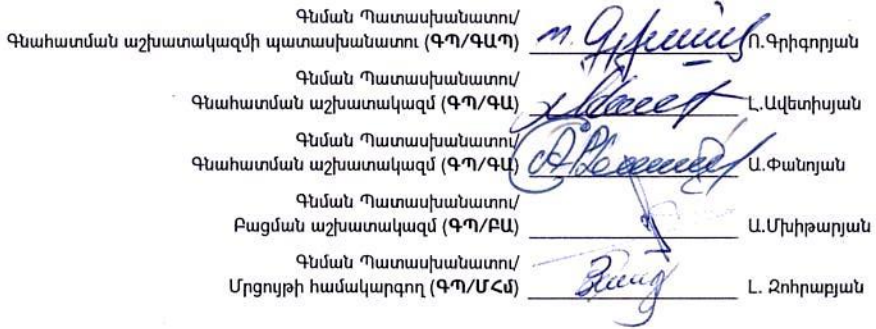 Գնման Պատասխանատու/
Գնահատման աշխատակազմի պատասխանատու (ԳՊ/ԳԱՊ) Ո.Գրիգորյան
Գնման Պատասխանատու/
Գնահատման աշխատակազմ (ԳՊ/ԳԱ) Լ.Ավետիսյան
Գնման Պատասխանատու/
Գնահատման աշխատակազմ (ԳՊ/ԳԱ) Ա.Փանոյան
Գնման Պատասխանատու/
Բացման աշխատակազմ (ԳՊ/ԲԱ) Ա.Մխիթարյան
Գնման Պատասխանատու/
Մրցույթի համակարգող (ԳՊ/ՄՀմ) Լ. Զոհրաբյան